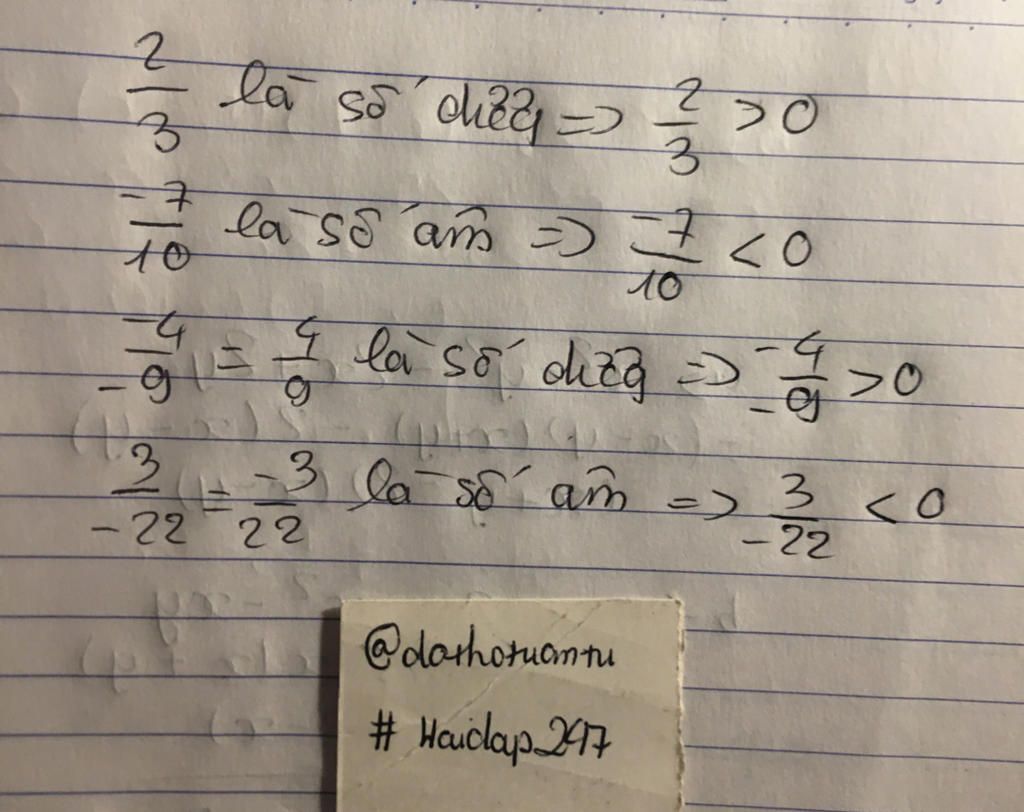 2/3 là số dương => 2/3 > 0
-7/10 là số âm => -7/10 < 0
-4/-9 = 4/9 là số dương => -4/-9 > 0
3/-22 = -3/22 là số âm => 3/-22 < 0
@dathotuantu
# Hoidap247